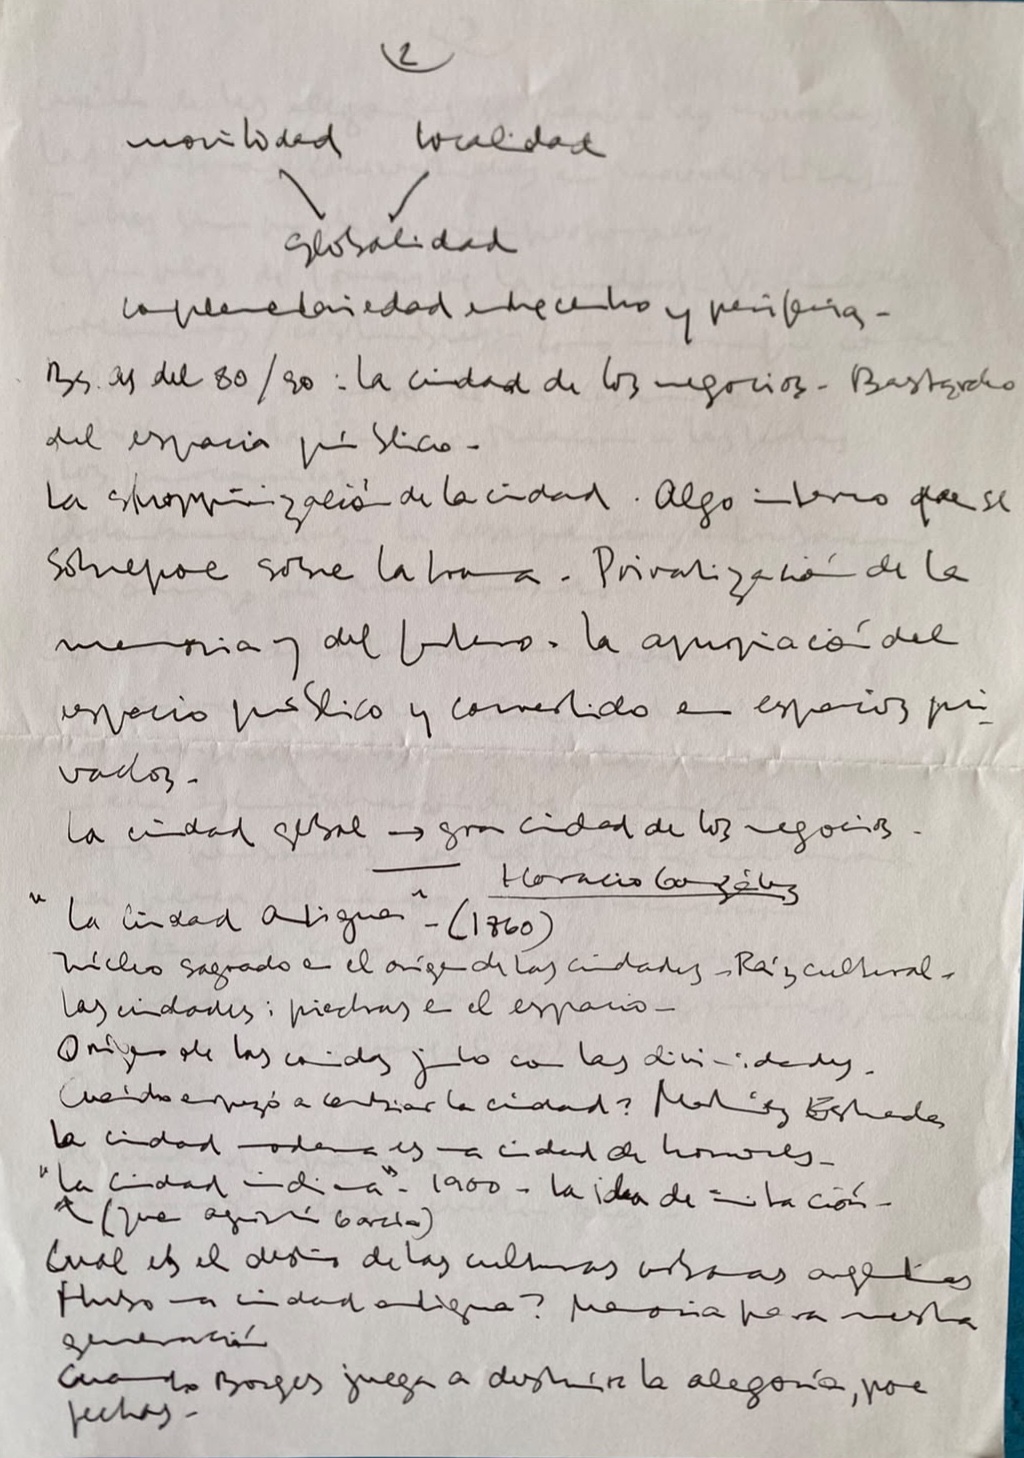 2
movilidad localidad
globalidad
complementariedad entre centro y periferia -
Bs. As del 80/90: la ciudad de los negocios - Bastardeo
del espacio público -
La shoppinización de la ciudad. Algo interno que se
sobrepone sobre la trama. Privatización de la
memoria y del futuro. La apropiación del
espacio público y convertido en espacios pri-
vados -
La ciudad global → gran ciudad de los negocios -
Horacio González
"La ciudad antigua" - (1860)
Núcleo sagrado en el origen de las ciudades - Raíz cultural -
Las ciudades: piedras en el espacio -
Origen de las junto con las divinidades -
Cuándo empezó a cambiar la ciudad? Martínez Estrada
La ciudad moderna es una ciudad de -
"La ciudad indiana" - 1900 - La idea de imitación -
(Juan Agustín García)
Cual es el destino de las culturas urbanas argentinas
Hubo una ciudad antigua? Memoria para nuestra
generación
Cuando Borges juega a destruir la alegoría, pone
fechas -